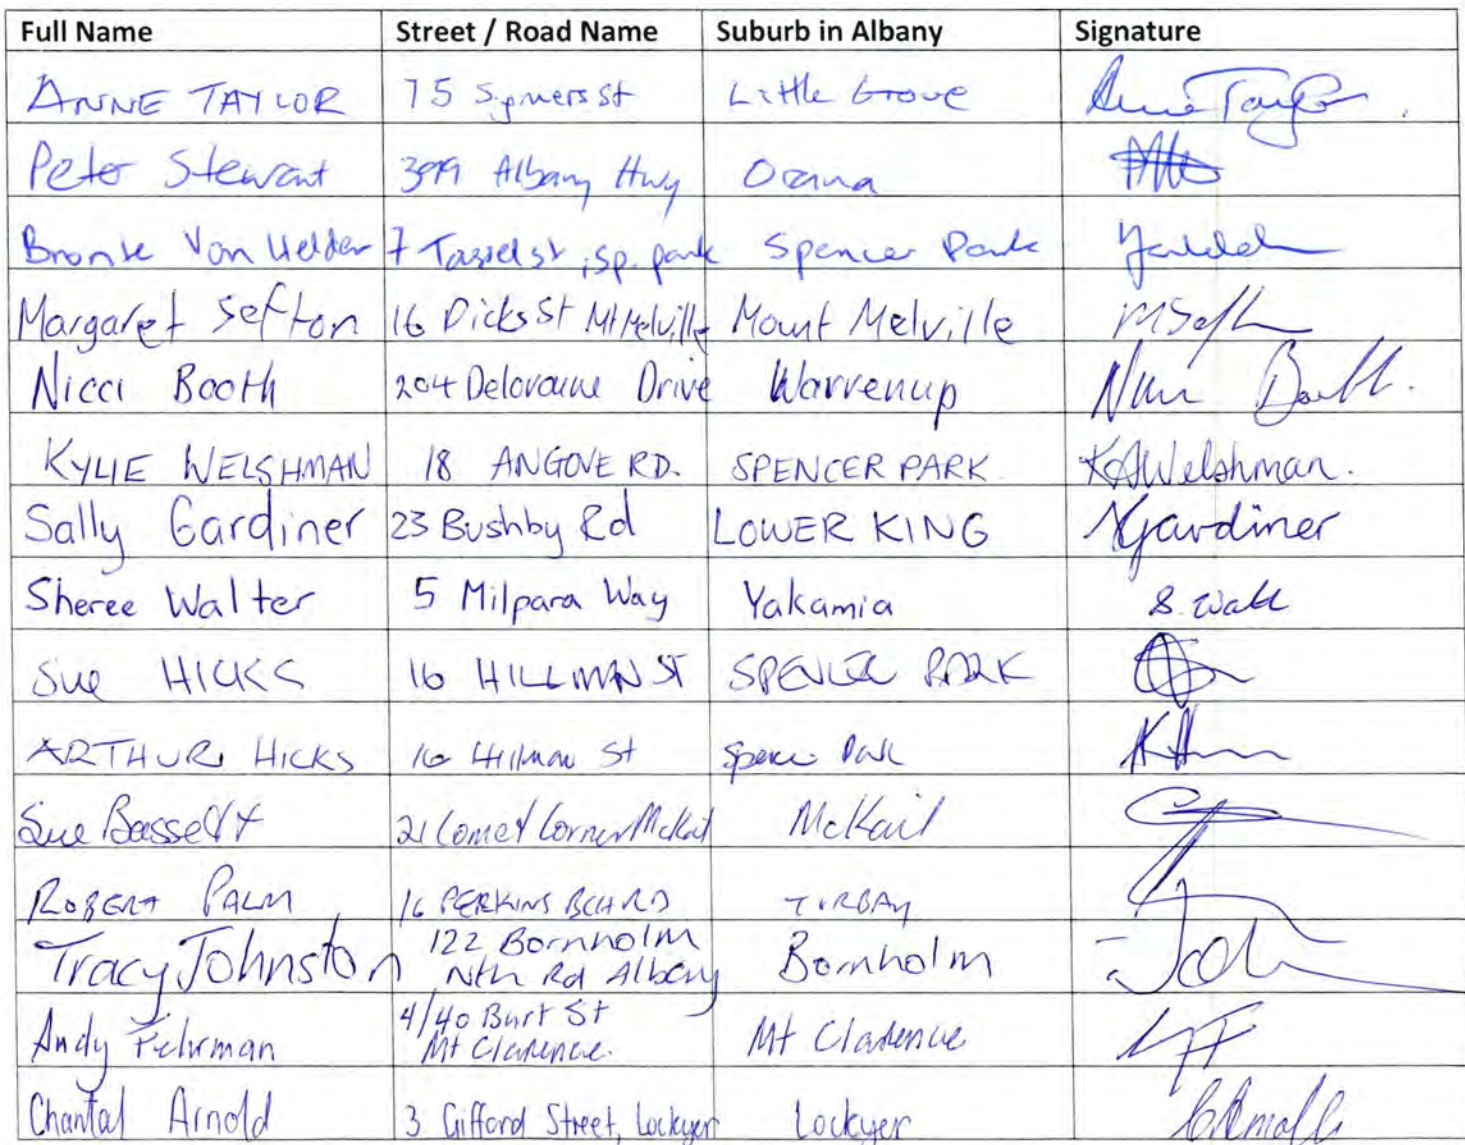 Full Name Street / Road Name Suburb in Albany Signature
ANNE TAYLOR 75 Symers st Little Grove Anne Taylor.
Peter Stewart 399 Albany Hwy Orana
Bronte Van Helder 7 Tassel st, sp. park Spencer Park
Margaret Sefton 16 Dicks St Mt Melville Mount Melville MSeft
Nicci Booth 204 Deloraine Drive Warrenup Nicci Booth.
KYLIE WELSHMAN 18 ANGOVE RD. SPENCER PARK KAWelshman.
Sally Gardiner 23 Bushby Rd LOWER KING SGardiner
Sheree Walter 5 Milpara Way Yakamia S. Walt
Sue HICKS 16 HILLMAN ST SPENCER PARK
ARTHUR HICKS 16 Hillman St Spencer Park
Sue Bassett 21 Comet Corner McKail McKail
ROBERT PALM 16 PERKINS BCH RD TORBAY
Tracy Johnston 122 Bornholm
Nth Rd Albany Bornholm
Andy Fehrman 4/40 Burt St
Mt Clarence. Mt Clarence
Chantal Arnold 3 Gifford Street, Lockyer Lockyer CArnold